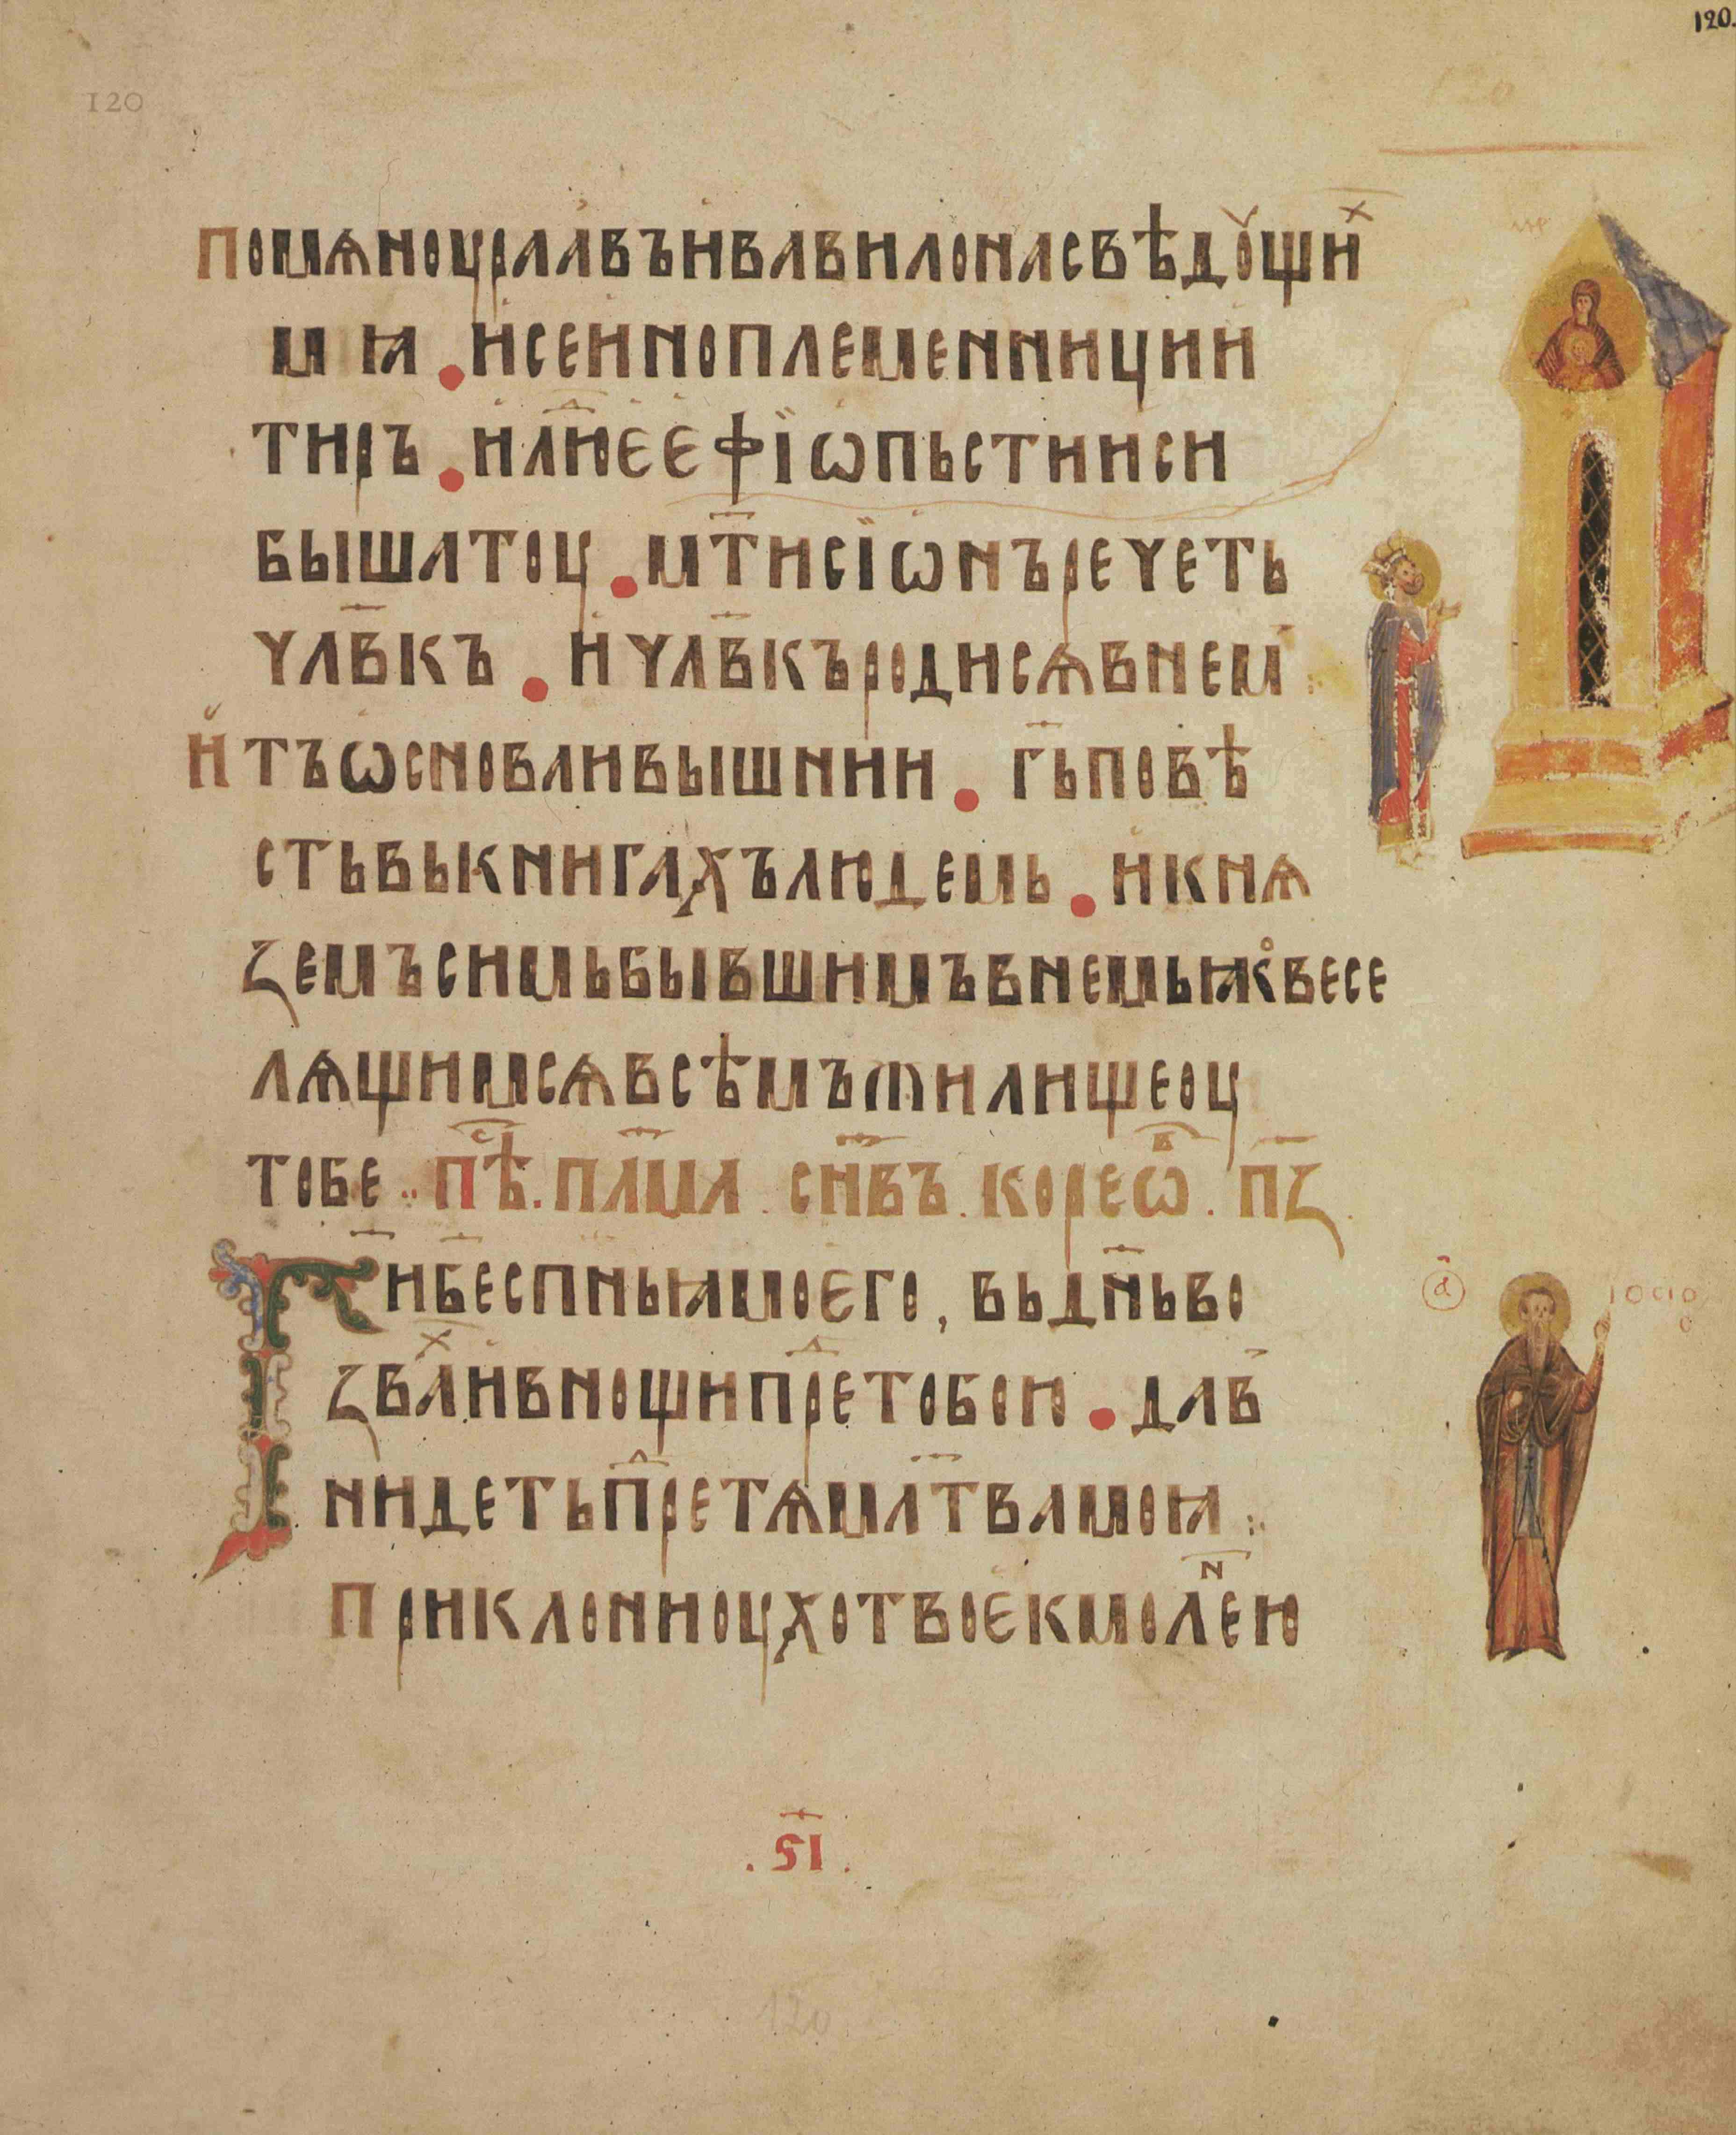 120.
120
помѧноу раава и вавилона свѣдоущиⷯ
ми ꙗ . и се иноплеменници и
тиръ . и люⷣе ефїѡпьстии си
быша тоу . мт҃и сїѡнъ речеть
чл҃вкъ . и чл҃вкъ роди сѧ в нем
И тъ ѡснова и вышнии . гь҃ повѣ
сть вь книгахъ людемь . и кнѧ
земъ симь бывшимъ в немь ꙗко весе
лѧщим сѧ всѣмъ жилище оу
тобе :. пѣⷭ . пл҃ма . сн҃въ . кореѡⷡ . пз҃
Ги҃ бе҃ сп҃ньꙗ моего , вь дн҃ь во
звахⷯ и в нощи преⷣ тобою . да в
нидеть преⷣ тѧ мл҃тва моꙗ :.
Приклони оухо твое к молеⷩю
. ѕ҃і .